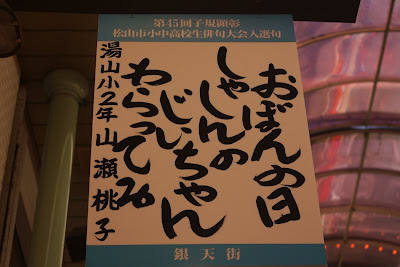 第45回子規顕彰
松山市小中高校生俳句大会入選句
おぼんの日
しゃしんの
じいちゃん
わらってる
湯山小2年 山瀬桃子
銀天街